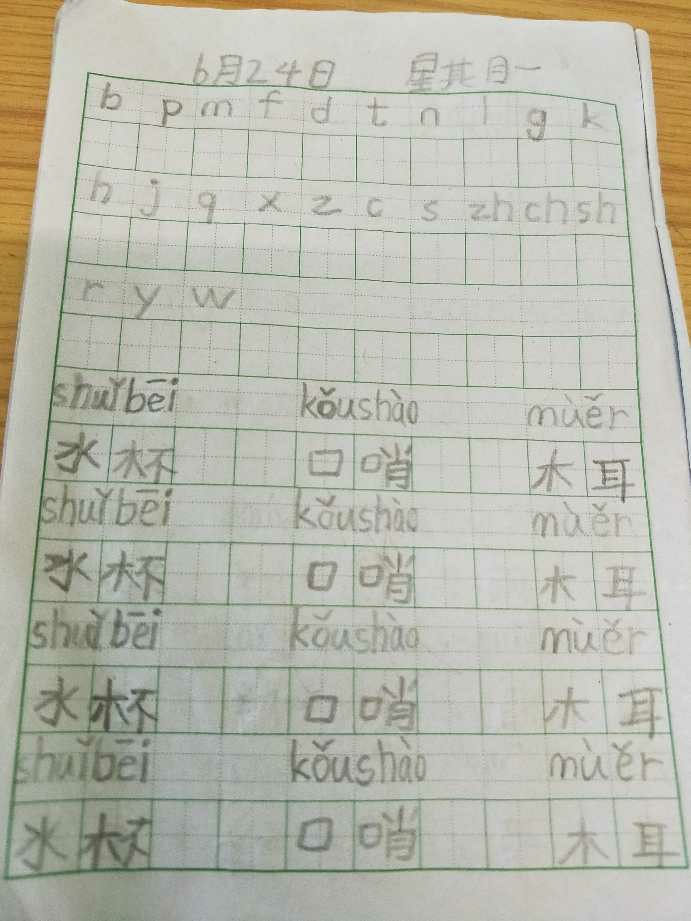 6月24日 星期一
b p m f d t n l g k
h j q x z c s zh ch sh
r y w
shuǐbēi kǒushào mùěr
水杯 口哨 木耳
shuǐbēi kǒushào mùěr
水杯 口哨 木耳
shuǐbēi kǒushào mùěr
水杯 口哨 木耳
shuǐbēi kǒushào mùěr
水杯 口哨 木耳